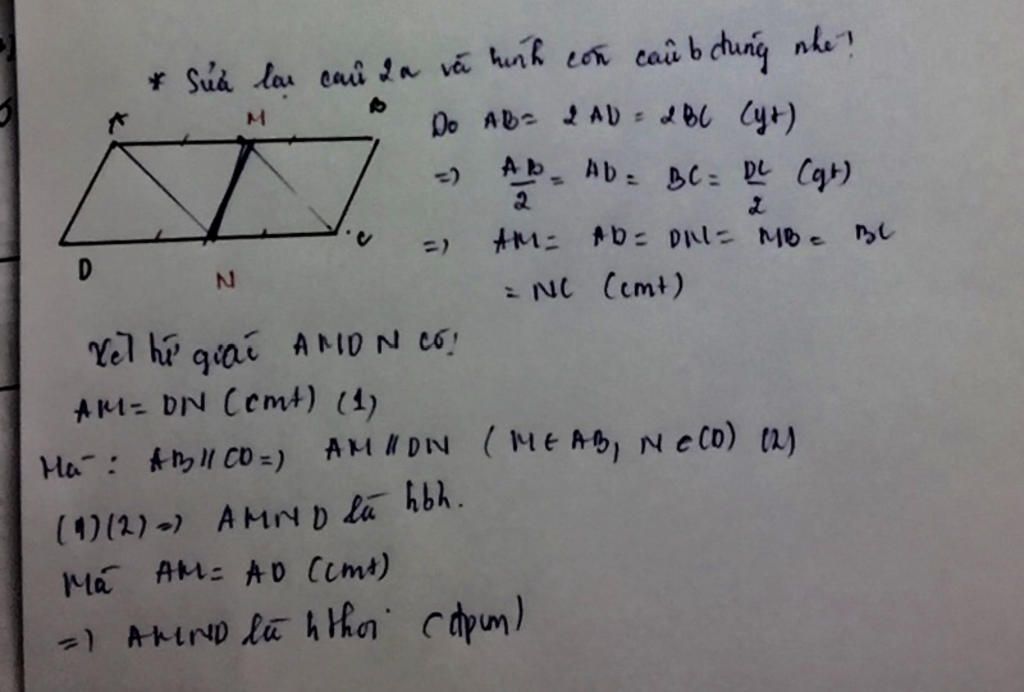 * Sửa lại câu 2a và hình còn câu b đúng nhé!
A M B
D N C
Do AB = 2AD = 2BC (gt)
=> AB/2 = AD = BC = DC/2 (gt)
=> AM = AD = DN = MB = BC
= NC (cmt)
Xét tứ giác AMDN có:
AM = DN (cmt) (1)
Mà: AB // CD => AM // DN (M ∈ AB, N ∈ CD) (2)
(1)(2) => AMND là hbh.
Mà AM = AD (cmt)
=> AMND là hthoi (đpcm)